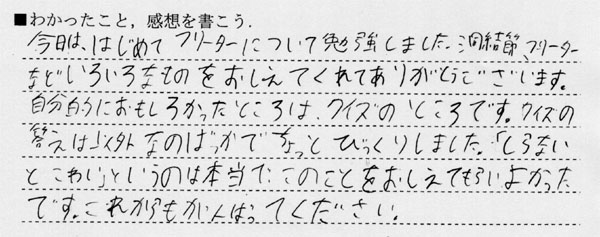 ■わかったこと，感想を書こう．
今日は、はじめてフリーターについて勉強しました。洞結節、フリーター
などいろいろなものをおしえてくれてありがとうございます。
自分的におもしろかったところは、クイズのところです。クイズの
答えは以外なのばっかでちょっとびっくりしました。「しらない
とこわい」というのは本当で、このことをおしえてもらいよかった
です。これからもがんばってください。